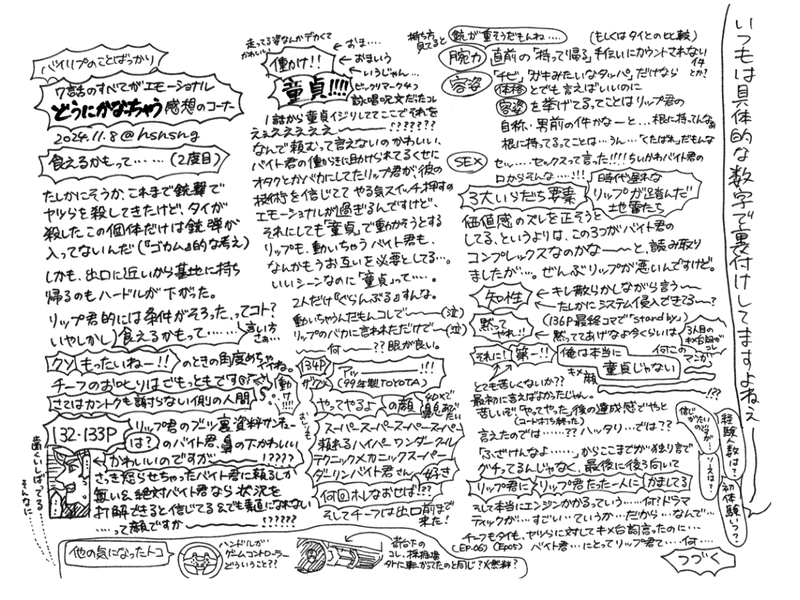 バイリプのことばっかり
7話のすべてがエモーショナル
どうにかなっちゃう感想のコーナー
2024.11.8 @hshshg
食えるかもって……(2度目)
たしかにそうか、これまで銃撃で
ヤツらを殺してきたけど、タイが
殺したこの個体だけは銃弾が
入ってないんだ(『ゴカム』的な考え)
しかも、出口に近いから基地に持ち
帰るのもハードルが下がった。
リップ君的には条件がそろった、ってコト?
いやしかし 食えるかもって……
言い方さぁ…
クソ もったいねー!! のときの角度めちゃ
イイね。
チーフのお口とりはぐもっともですが
さてはカントクも諦らない周りの人間
132-133P
リップ君のブツ
は? のバイト君、身の下かわいい
かわいいのですが……!????
さっき怒らせちゃったバイト君に頼るしか
無い&絶対バイト君なら状況を
打解できると信じてる&でも素直になれない
って顔ですか――!?????
歯くいしばってる
そんなに…
他の気になったトコ
走ってる姿なんかデカくて
かわいい
働かけ!!
童貞!!!!
おま…
おまいう
いうじゃん…
ビックリマーク4つ
1話から童貞イジりしててここでそれを
ええええええええ――!??????
なんで頼むって言えないのかわいい、
バイト君の働らきに助けられてるくせに
オタクとかバカにしてたリップ君が、彼の
技術を信じてて やる気スイッチ押すの
エモーショナルが過ぎるんですけど、
それにしても「童貞」で動かそうとする
リップも、動いちゃうバイト君も、
なんかもうお互いを必要としる…。
いいシーンなのに「童貞」って…。
2人だけ『ぐらんぶる』すんな。
動いちゃうんだもんコレで――(泣)
リップのバカに言われただけで――(泣)
何――?? 眼が良い。
134P
アッ――!!!
(99年製TOYOTA)
やってやるよ の顔
スーパースーパースーパースーパー
頼れるハイパーワンダークル
テクニックメカニックスーパー
ダーリンバイト君さん 好き
何回オレなおせば!??
そしてチーフは出口前まで
来た!
ハンドルが
ゲームコントローラー
どういうこと??
持ち方
見てると
銃が重そうだもんね…
(もしくはタイとの比較)
腕力
直前の「持って帰る」手伝いにカウントされない
件とか?
容姿
「チビ」「ガキみたいなタッパ」だけなら
体格とでも言えばいいのに
容姿を挙げてるってことはリップ君の
自称・男前の件かなーと…根に持ってんなぁ
根に持ってることは…うん…「くたばれ」だもんな
SEX
セッ…、セックスって言った!!!!ちいかわバイト君の
口からそんな…!!!
3大いらだち要素
時代遅れな
リップが踏んだ
地雷たち
価値感のズレを正そうと
してる、というよりは、この3つがバイト君の
コンプレックスなのかな――と、読み取り
ましたが…。ぜんぶリップが悪いんですけど。
知性
キレ散らかしながら言う――
たしかにシステム侵入できてる――?
(136P最終コマで「stand by」)
黙って
やれ!!
黙ってあげなよ今くらいは
3人目の
それに!
第一!!
俺は本当に
童貞じゃない
キメ顔
何このマニが
とても苦しくないか??
最初に言えばよかったじゃん。
苦しいぞ「やってやった」後の達成感でやと
(コード打ち終った)
言えたのでは……??ハッタリ…では??
「ふざけんなよ……」からここまでが独り言で
グチってるんじゃなく、最後に後ろ向いて
リップ君に リップ君たった一人に かましてる
そして本当にエンジンかかるっていう…、何?ドラマ
ティックが…すごい…ていうか…だから…なんで…
チーフもタイも、ヤツらに対してキメ台詞言ってたのに…
(EP.06) (EP05) バイト君…にとってリップ君て…何…
経験人数は?
初体験いつ??
つづく
いつもは具体的な数字で裏付けしてますよねぇ